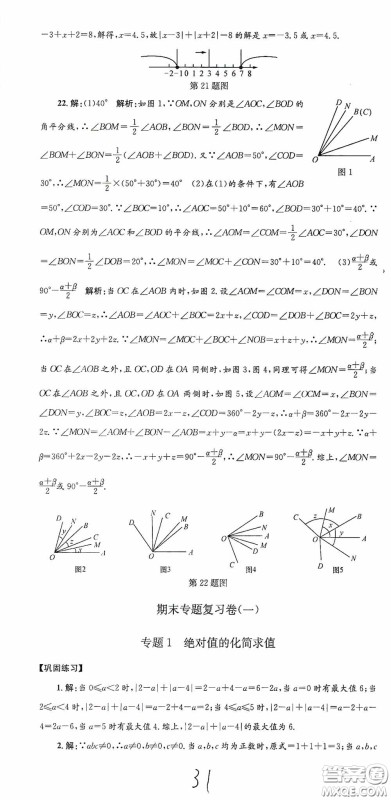 -3+x+2=8,解得,x=4.5,故|x-3|+|x+2|=8的解是x=-3.5或x=4.5.
-2-1 0 1 2 3 4 5 6 7 8
第21题图
22.解:(1)40° 解析:如图1,∵OM,ON分别是∠AOC,∠BOD的
角平分线,∴∠BOM=1/2∠AOB,∠BON=1/2∠BOD,∴∠MON=
∠BOM+∠BON=1/2(∠AOB+∠BOD).又∵∠AOB=50°,∠COD=
30°,∴∠MON=1/2×(50°+30°)=40° (2)在(1)的条件下,有∠AOB
D N B(C) M O A
图1
=50°,∠COD=30°.∵∠BOC=10°,∴∠AOC=50°+10°=60°,∠BOD=30°+10°=40°.∵
OM,ON分别为∠AOC和∠BOD的平分线,∴∠AOM=∠COM=1/2∠AOC=30°,∠DON
=∠BON=1/2∠DOB=20°,∴∠MON=∠MOC+∠CON=30°+10°=40°. (3)α+β/2或
90°-α+β/2 解析:当OC在∠AOB内时,如图2.设∠AOM=∠COM=x,∠DON=∠BON
=y,∠BOC=z,∴∠AOB=∠AOC+∠BOC=2x+z,∴∠COD=∠DOB+∠BOC=2y+z,
∴α+β=2x+2y+2z.∵∠MON=∠MOC+∠BOC+∠NOB=x+z+y,∴∠MON=α+β/2;
当OC在∠AOB之外,且OC,OD在OA同侧时,如图3、图4,同理可得∠MON=α+β/2;当OC
OC在∠AOB之外,且OC,OD在OA两侧时,如图5,设∠AOM=∠OCM=x,∠BON=
∠DON=y,∠BOC=z,∠AOB=2x-z,∠COD=360°-2y-z,∴α+β=360°-2x-2y-
2z.∵∠MON=∠AOM+∠BON-∠AOB=x+y-α=x+y-(2x-z)=-x+y+z.∵α+
β=360°+2x-2y-2z,∴-x+y+z=90°-α+β/2,∴∠MON=90°-α+β/2.综上,∠MON=
α+β/2或90°-α+β/2.
图2
图3
图4
图5
第22题图
期末专题复习卷(一)
专题1 绝对值的化简求值
【巩固练习】
1.解:当0≤a<2时,|2-a|+|a-4|=2-a+4-a=6-2a,当a=0时有最大值6;当
2≤a<4时,|2-a|+|a-4|=a-2+4-a=2;当4≤a≤5时,|2-a|+|a-4|=a-2+a-
4=2a-6,当a=5时有最大值4.综上,|2-a|+|a-4|的最大值为6.
2.解:∵abc≠0,∴a≠0,b≠0,c≠0.当a,b,c均为正数时,原式=1+1+1=3;当a,b,c
31